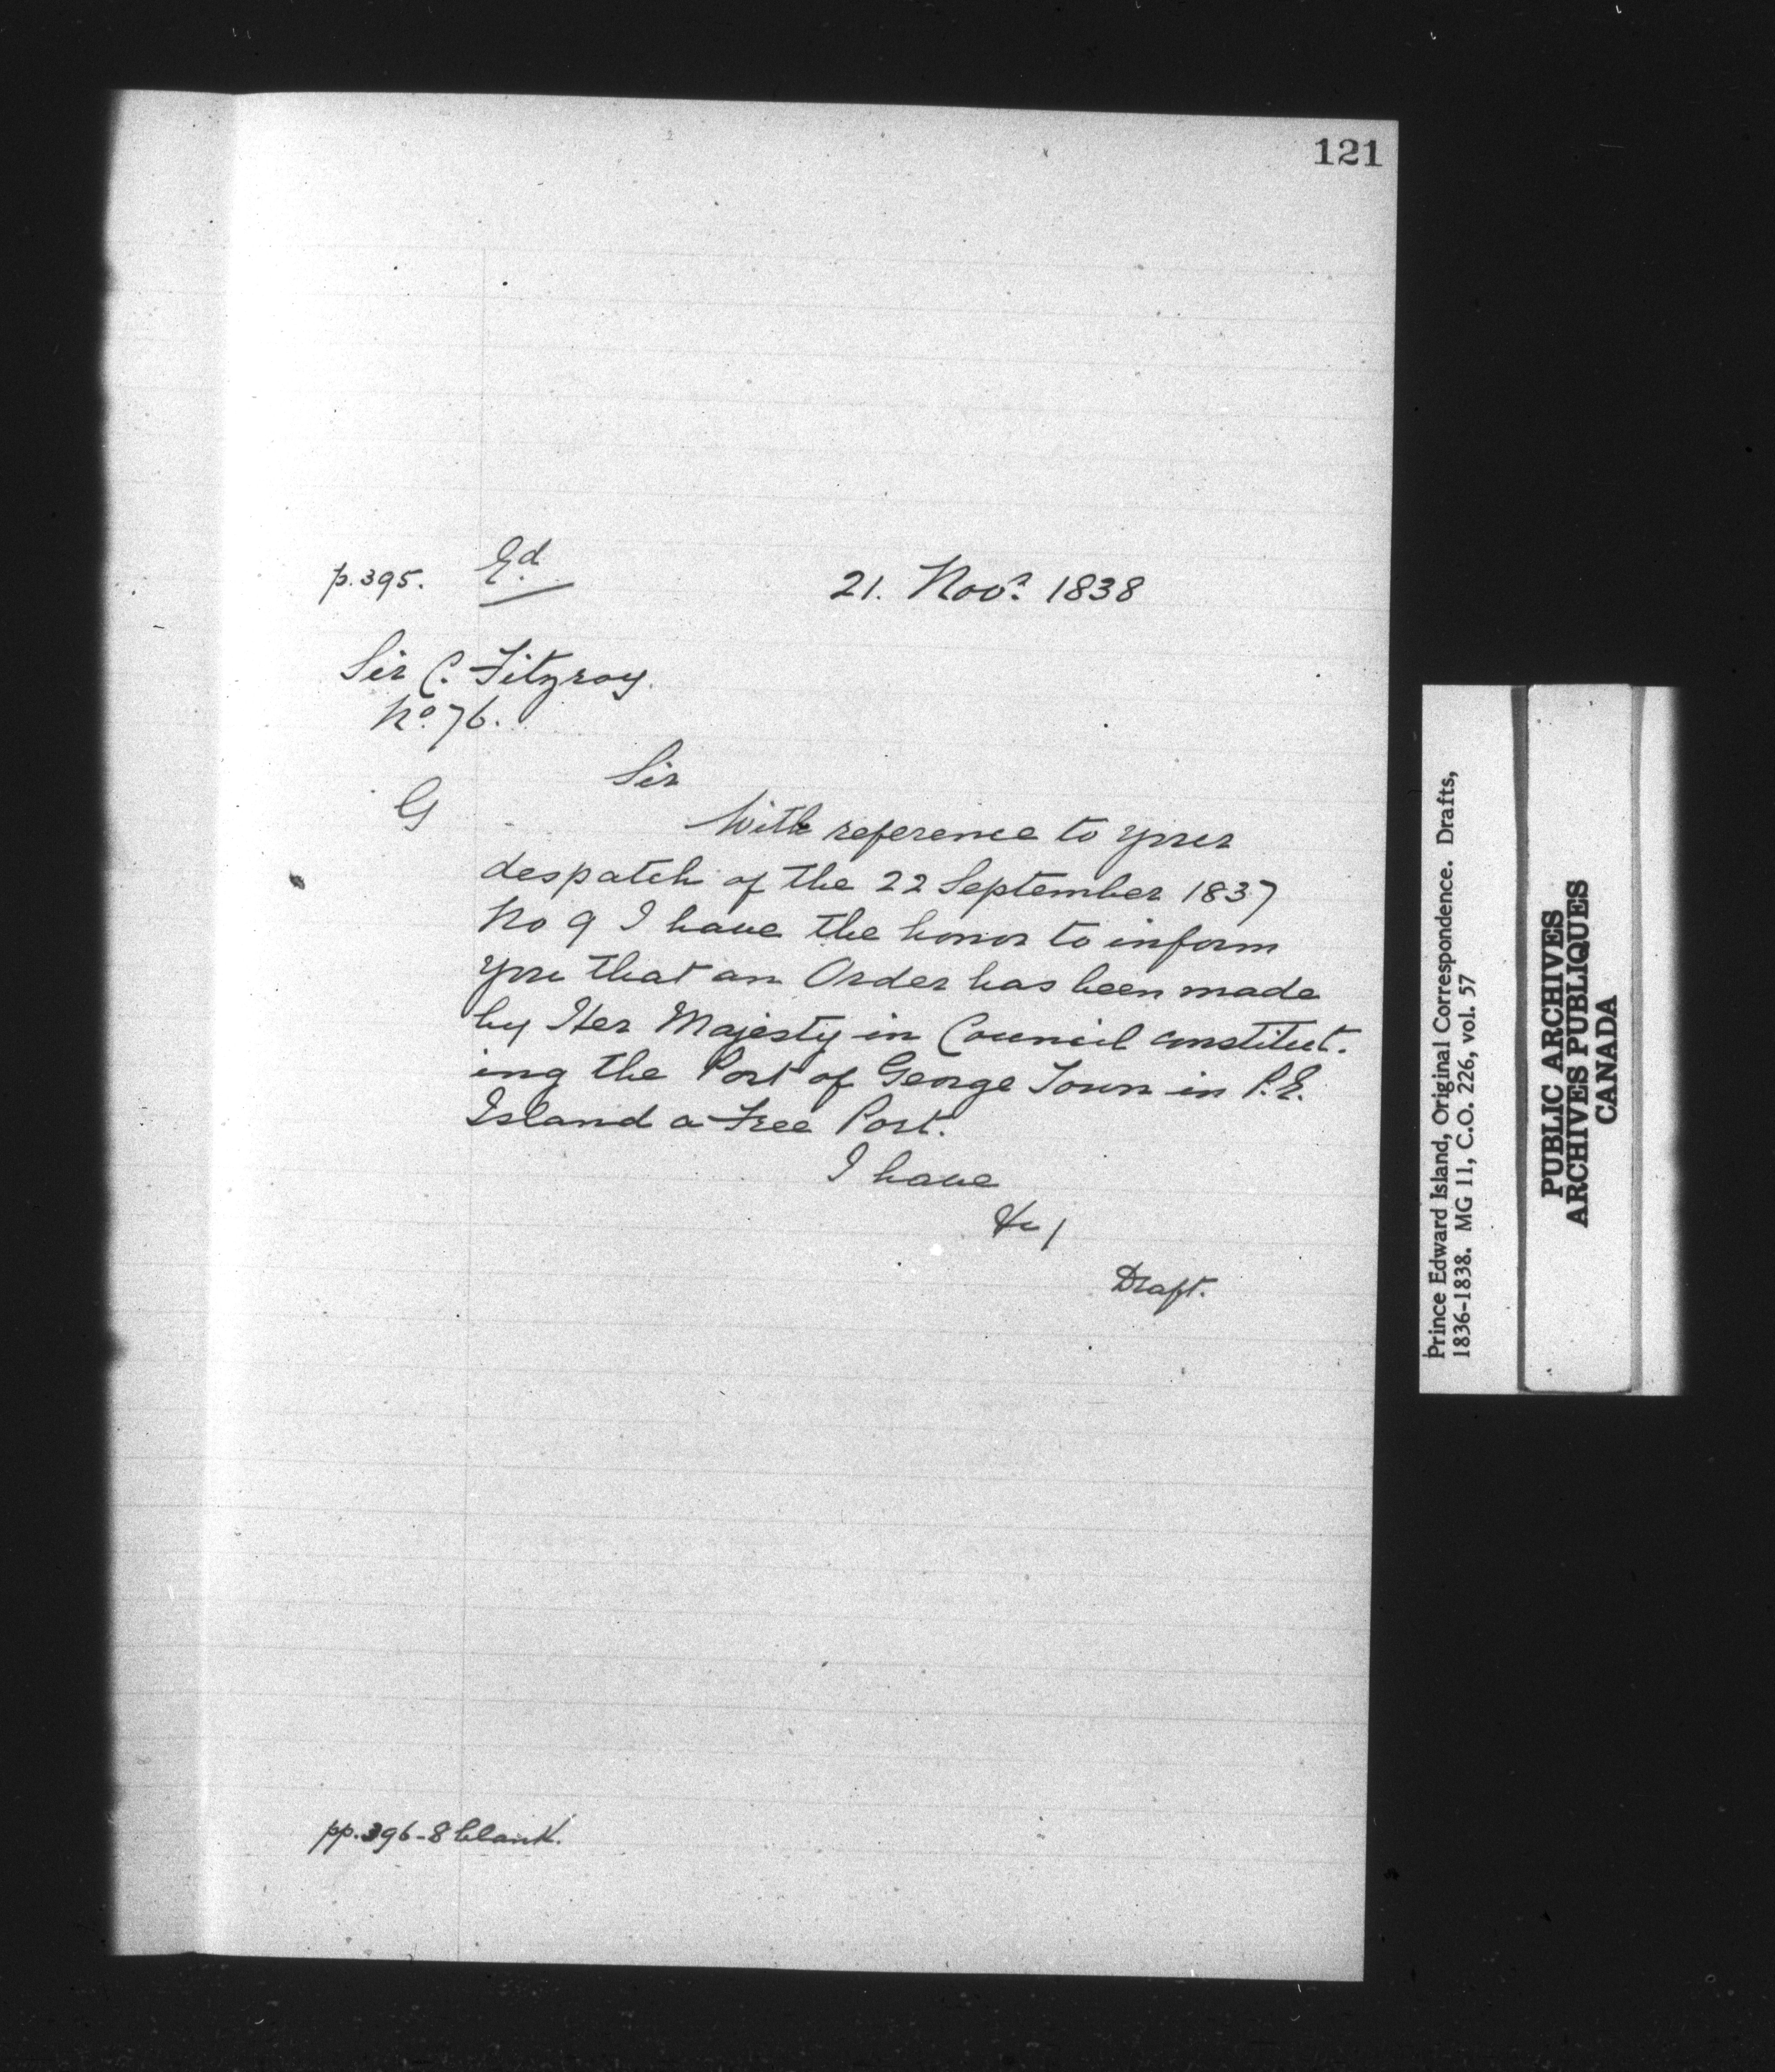 121
p.395. Ed 21. Novr. 1838
Sir C. Fitzroy.
No. 76.
Sir
G
With reference to your
despatch of the 22 September 1837
No 9 I have the honor to inform
you that an Order has been made
by Her Majesty in Council constitut-
ing the Port of George Town in P.E.
Island a Free Port.
I have
&c /
Draft.
pp. 396-8 blank.
Prince Edward Island, Original Correspondence. Drafts,
1836-1838. MG 11, C.O. 226, vol. 57
PUBLIC ARCHIVES
ARCHIVES PUBLIQUES
CANADA